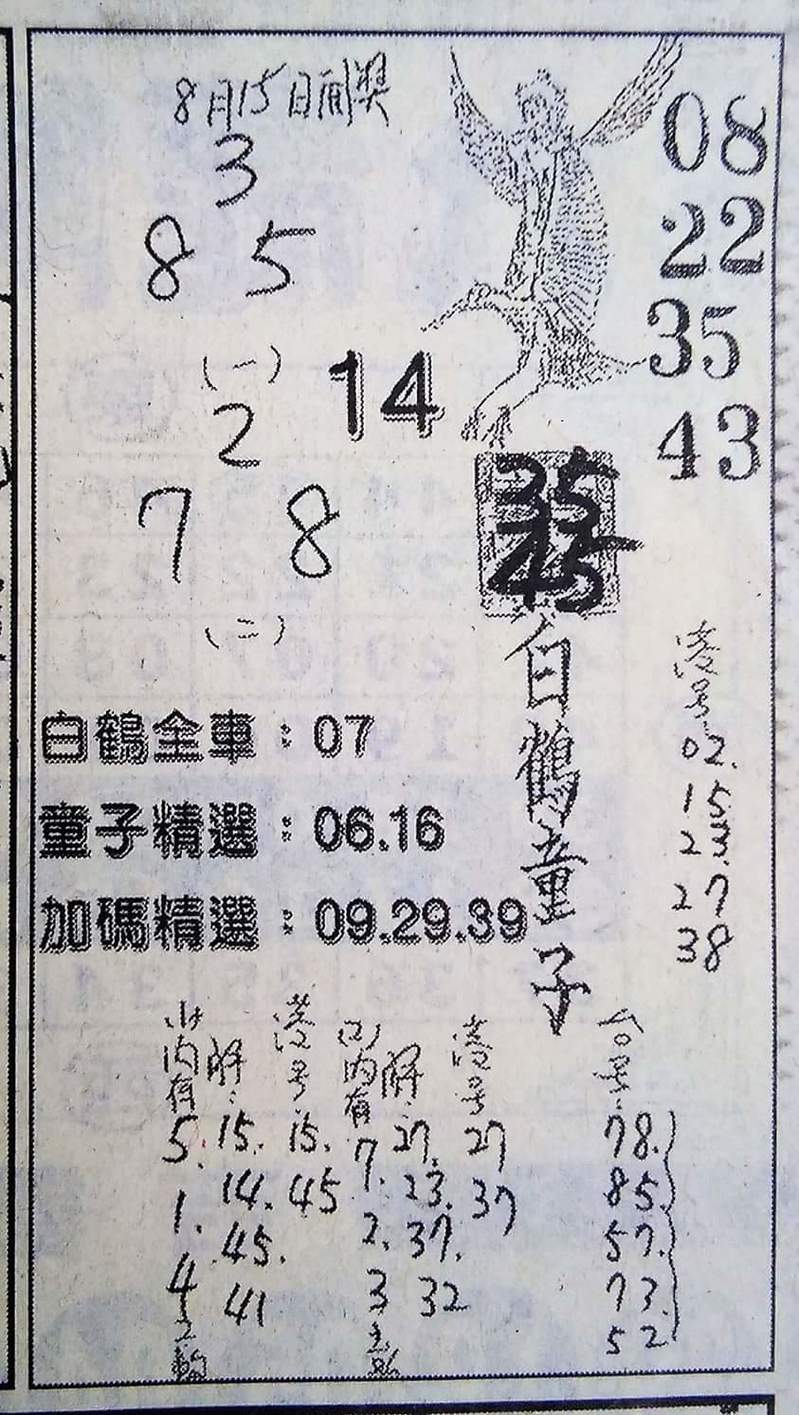 8月15日開獎
3
8 5
(一)
2
7 8
(二)
14
08
22
35
43
35
45
白鶴童子
港号:
02.
15
23.
27
38
白鶴全車：07
童子精選：06.16
加碼精選：09.29.39
(1)內有
5.
1.
4
主輪
解:
15.
14.
45.
41
港号
15.
45
(2)內有
7
1.
2.
3
解:
27.
23.
37.
32
港号
27
37
台号:
78.
85.
57.
73.
52